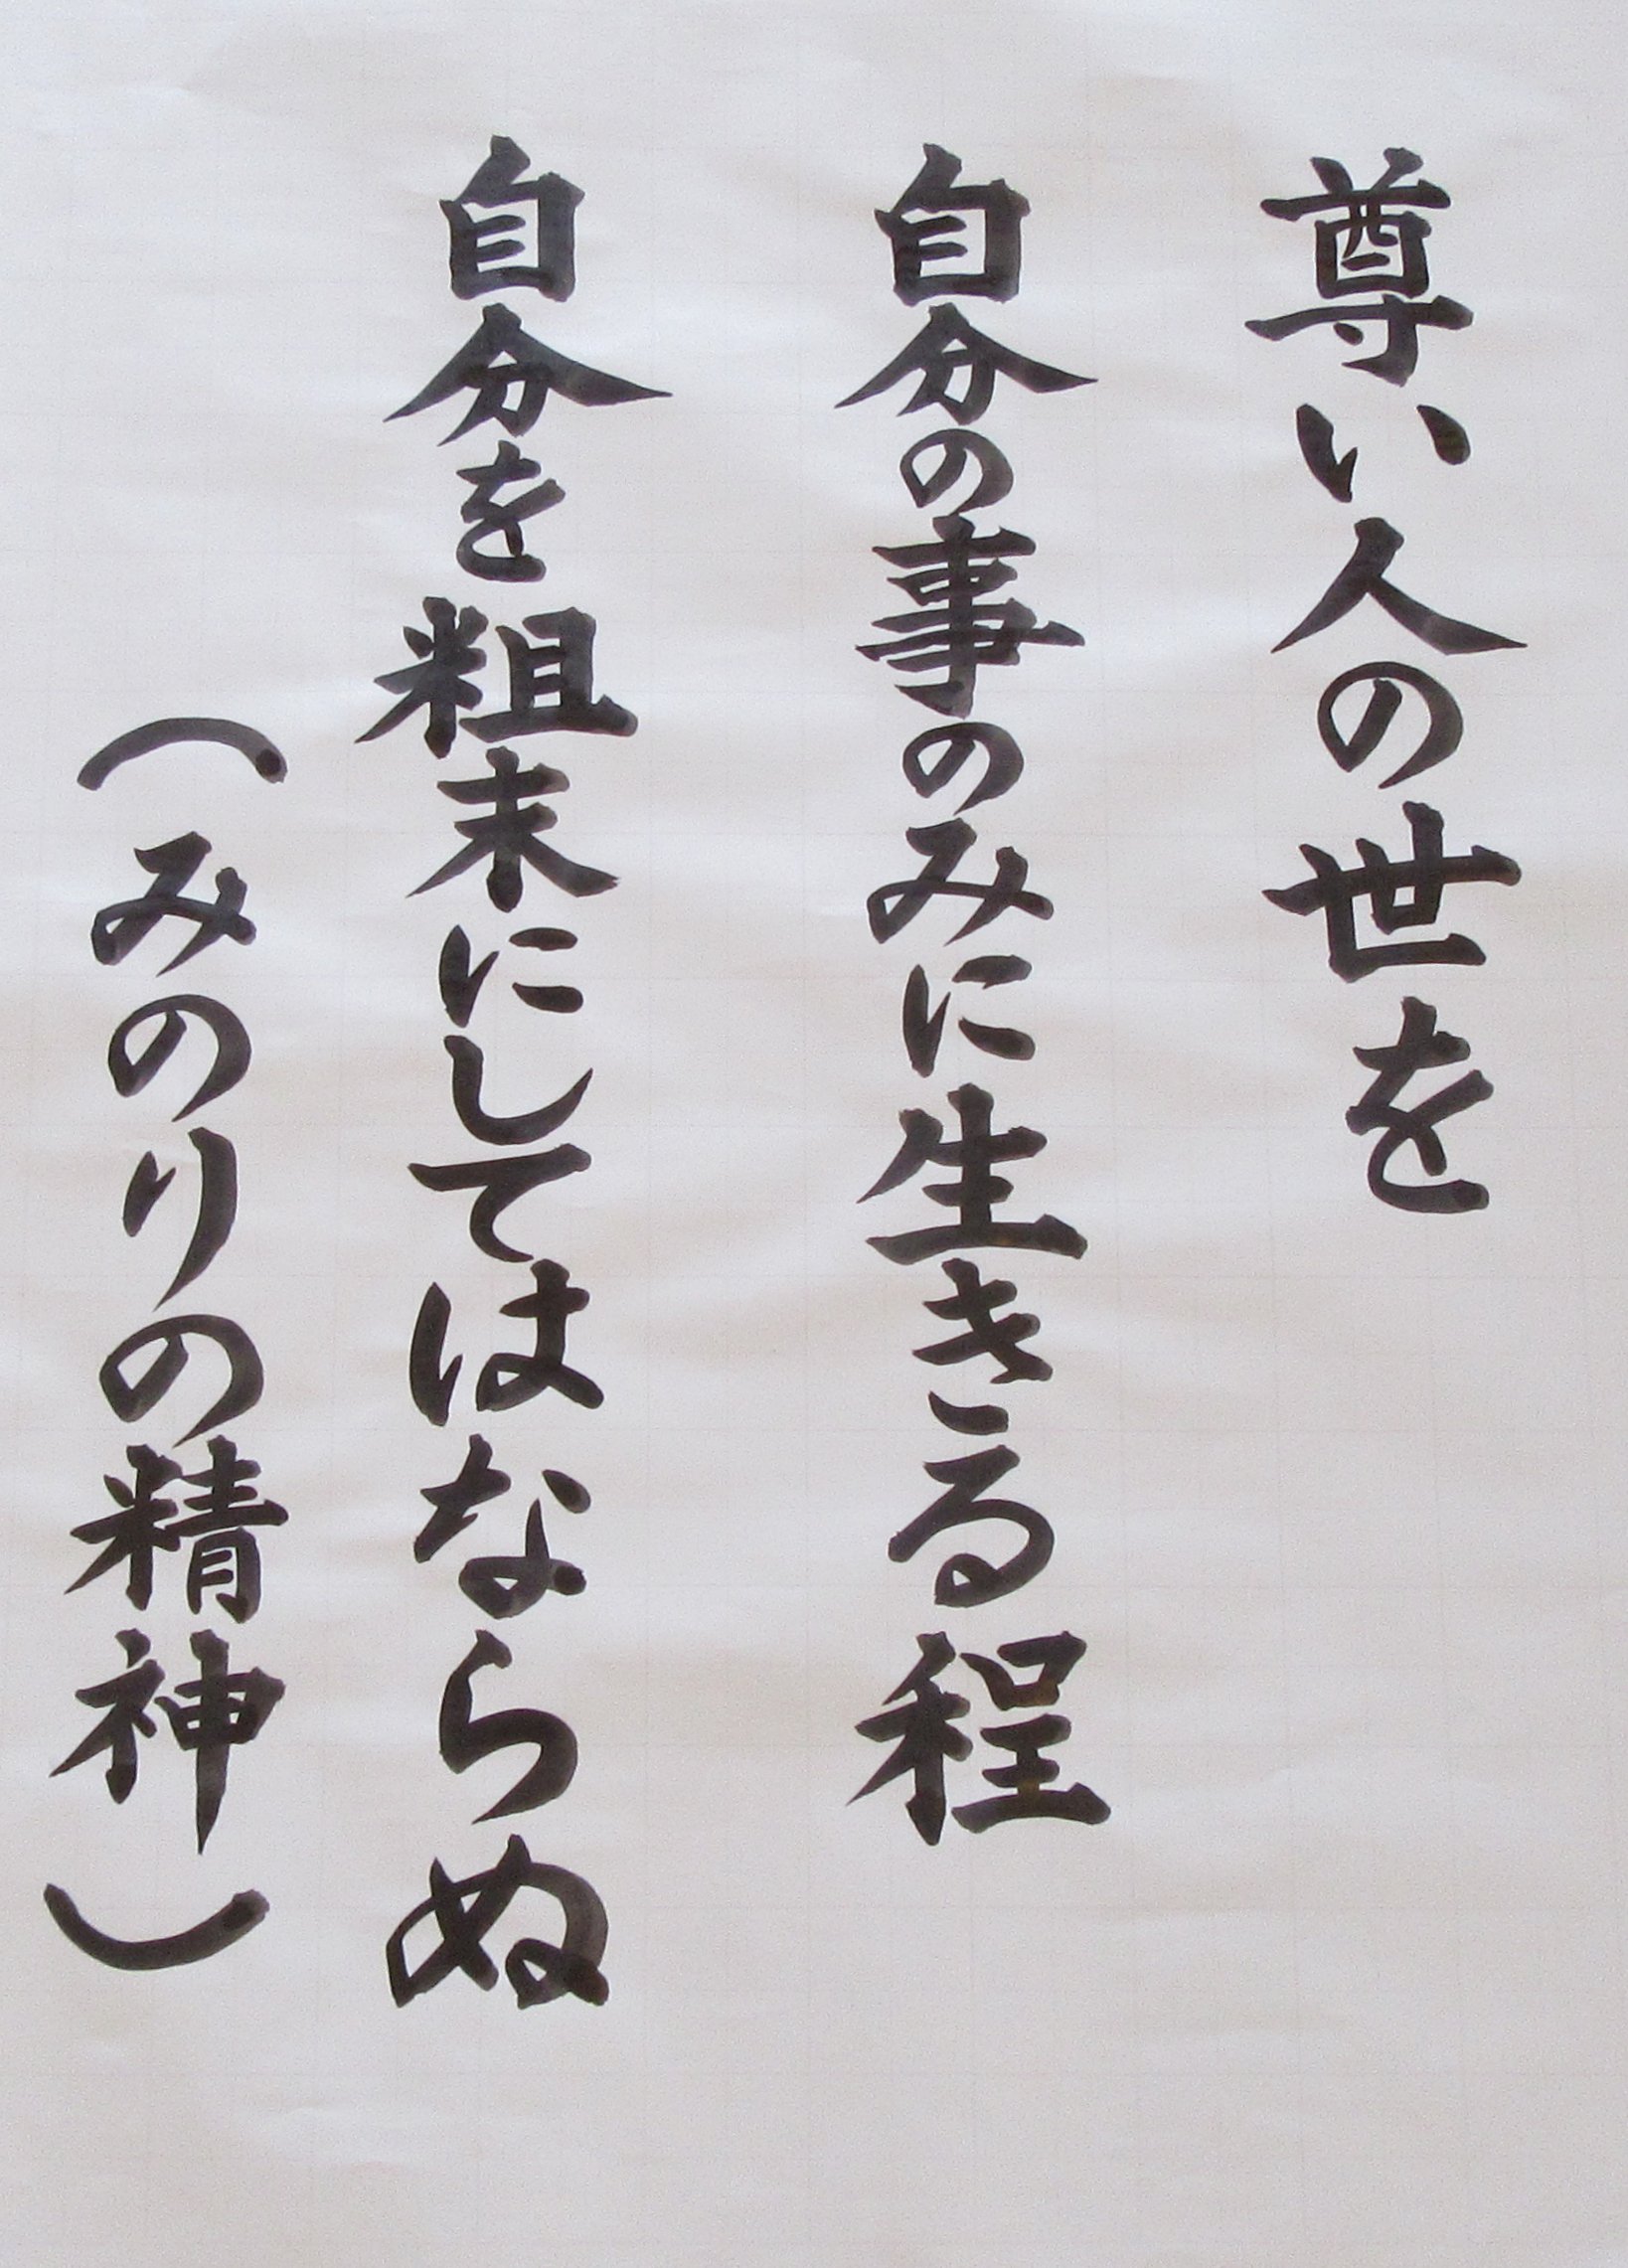 尊い人の世を
自分の事のみに生きる程
自分を粗末にしてはならぬ
（みのりの精神）